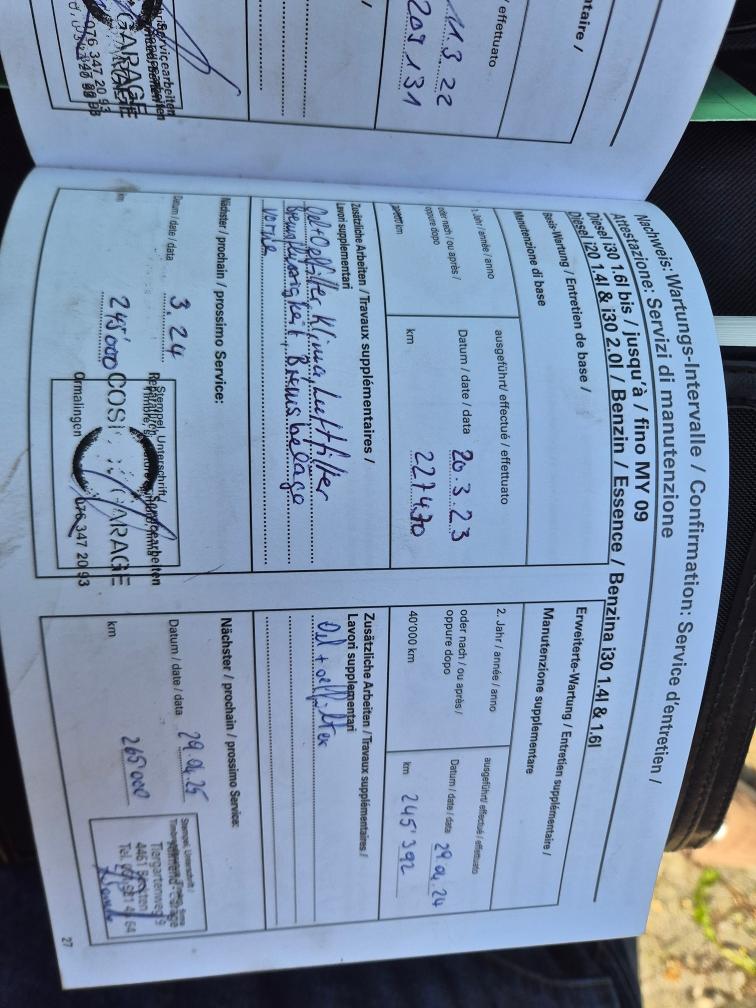 ntaire /
/ effettuato
11 3 22
209 131
GARAGE
076 347 20 93
Nachweis: Wartungs-Intervalle / Confirmation: Service d'entretien /
Attestazione: Servizi di manutenzione
Diesel i30 1.6l bis / jusqu'à / fino MY 09
Diesel i20 1.4l & i30 2.0l / Benzin / Essence / Benzina i30 1.4l & 1.6l
Basis-Wartung / Entretien de base /
Manutenzione di base
1. Jahr / année / anno
oder nach / ou après /
oppure dopo
km
ausgeführt/ effectué / effettuato
Datum / date / data 20.3.23
km 227470
Zusätzliche Arbeiten / Travaux supplémentaires /
Lavori supplementari
Oel+Oelfilter, Klima, Luftfilter
Bremsflüssigkeit, Bremsbeläge
vorne
Nächster / prochain / prossimo Service:
Datum / date / data 3.24
km 245'000
Stempel, Unterschrift,
COSI GARAGE
Ormalingen 076 347 20 93
Erweiterte-Wartung / Entretien supplémentaire /
Manutenzione supplementare
2. Jahr / année / anno
oder nach / ou après /
oppure dopo
40'000 km
ausgeführt/ effectué / effettuato
Datum / date / data 29.04.24
km 245'392
Zusätzliche Arbeiten / Travaux supplémentaires /
Lavori supplementari
Oel + oelfilter
Nächster / prochain / prossimo Service:
Datum / date / data 29.04.25
km 265'000
Tiergartenweg 9
4461
Tel.
27